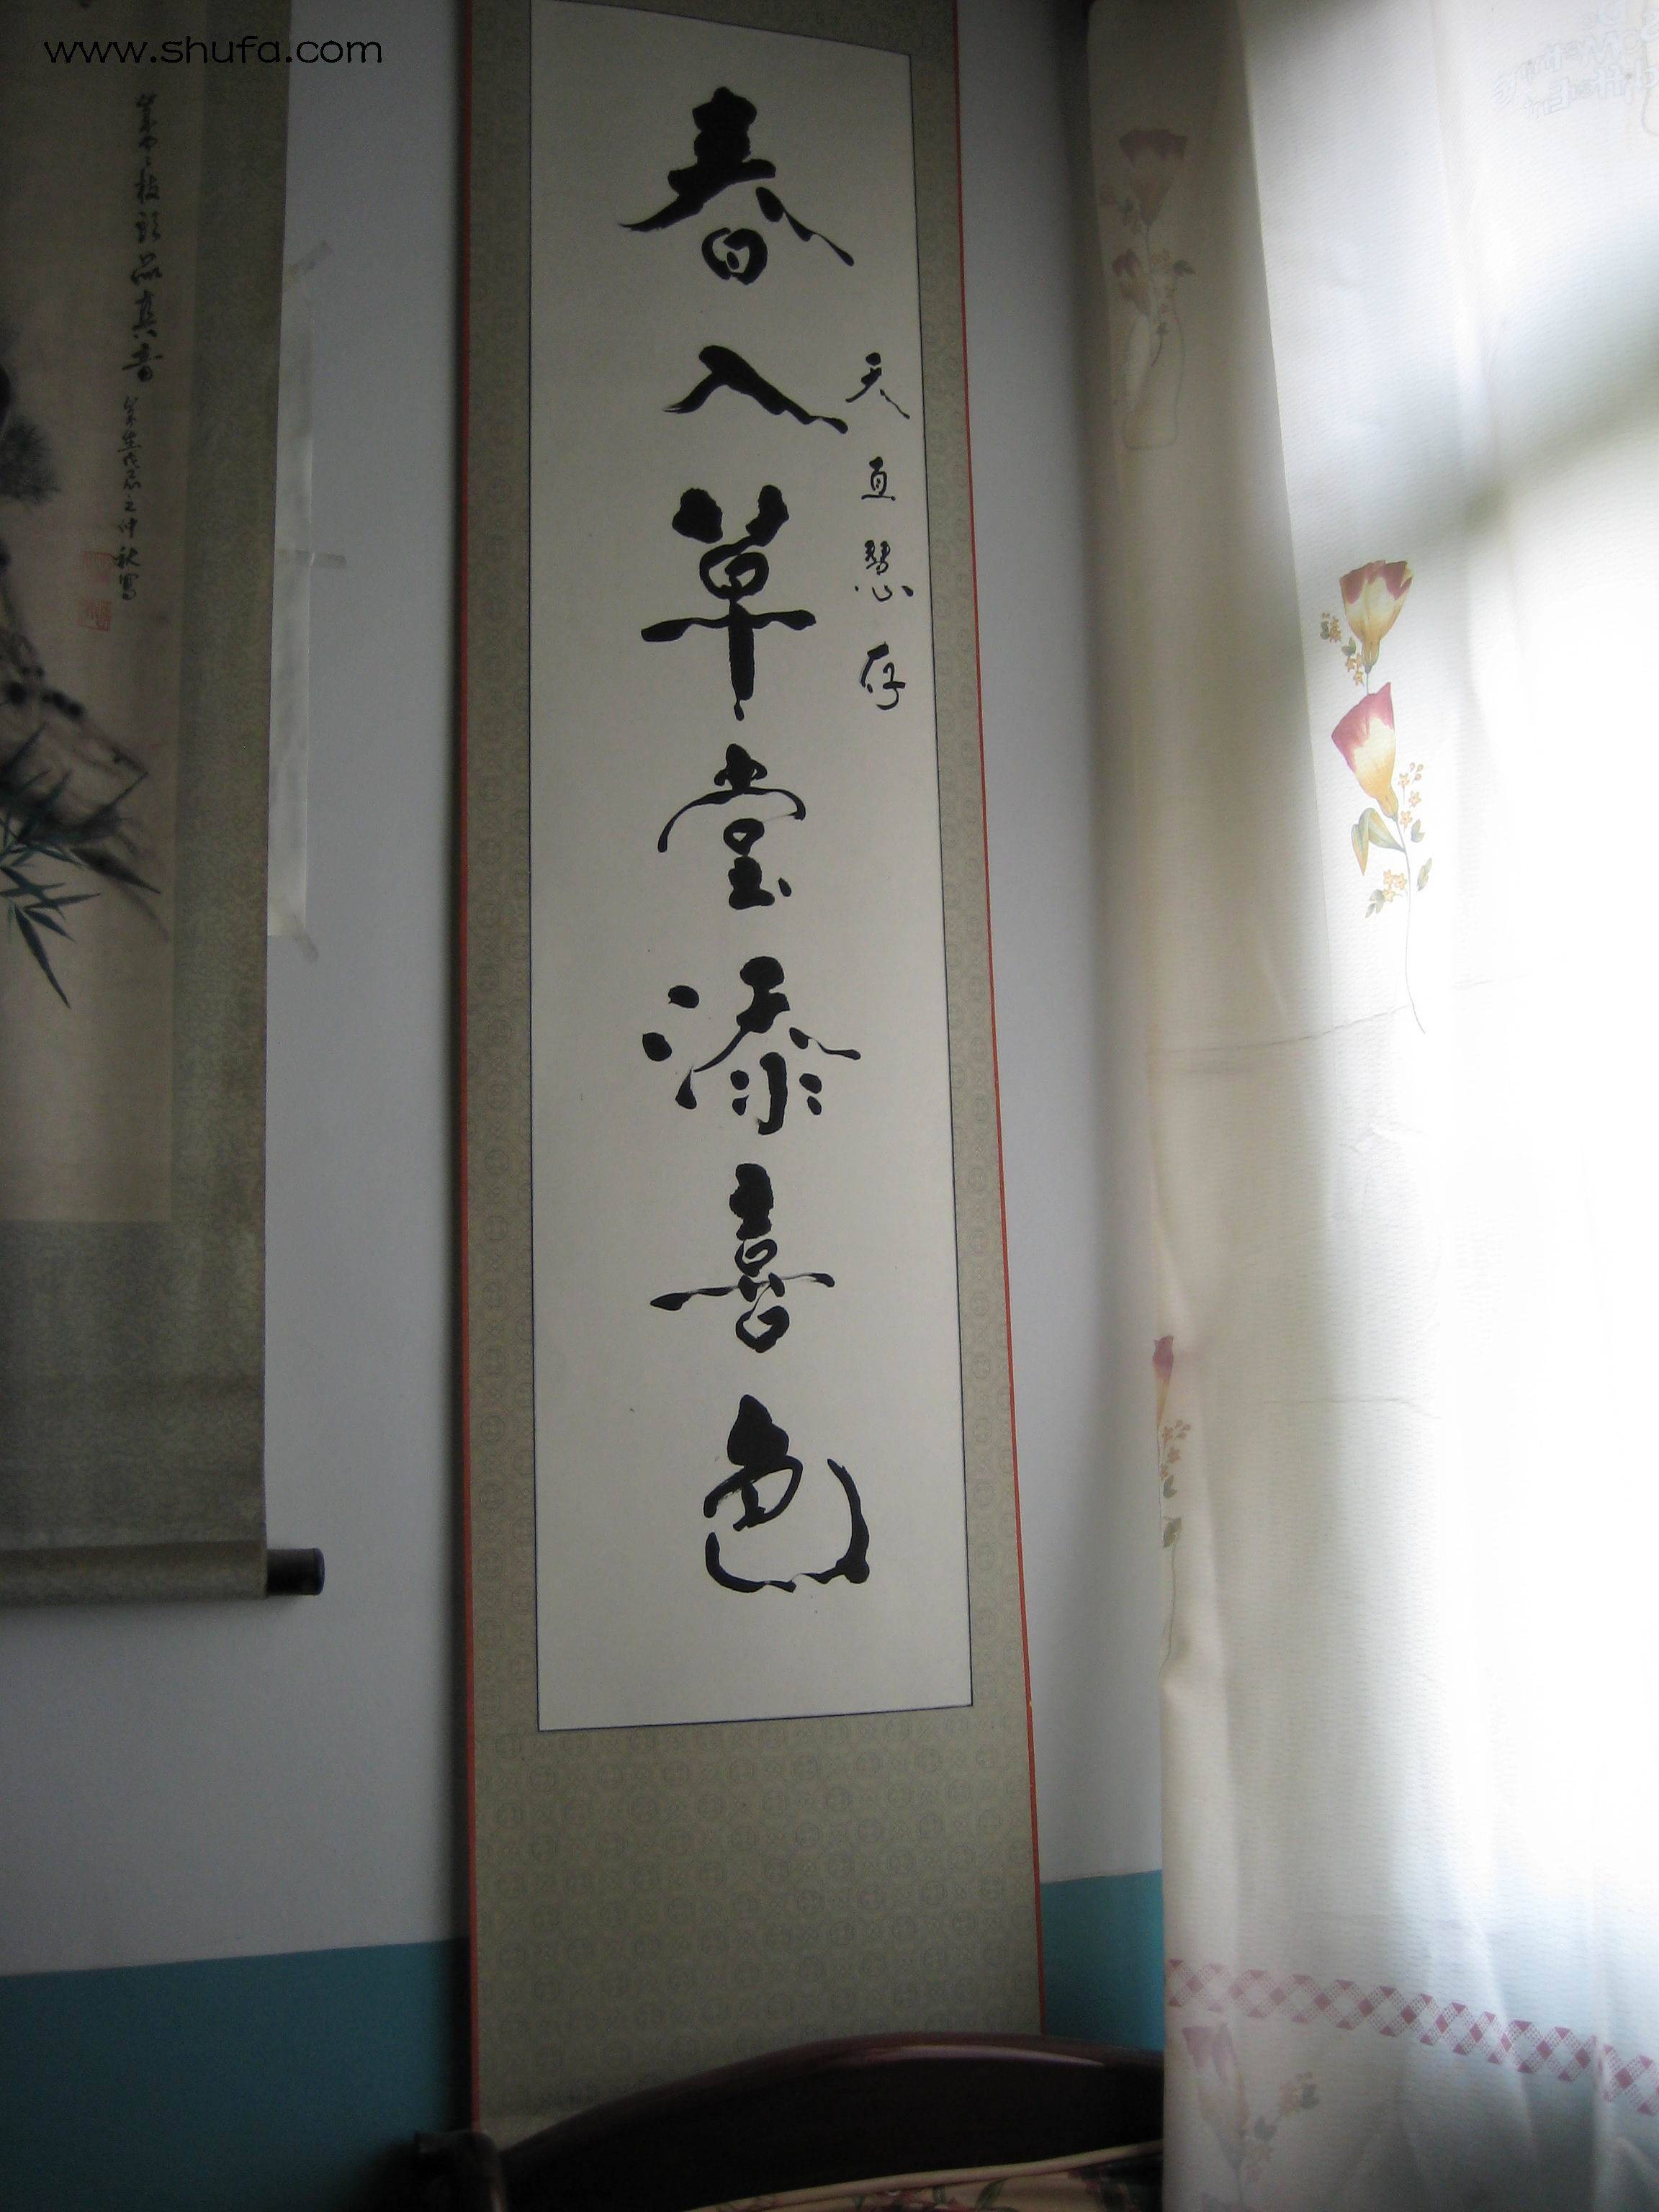 www.shufa.com
天直慧存
春入草堂添喜色
枝頭品真香
之仲秋寫